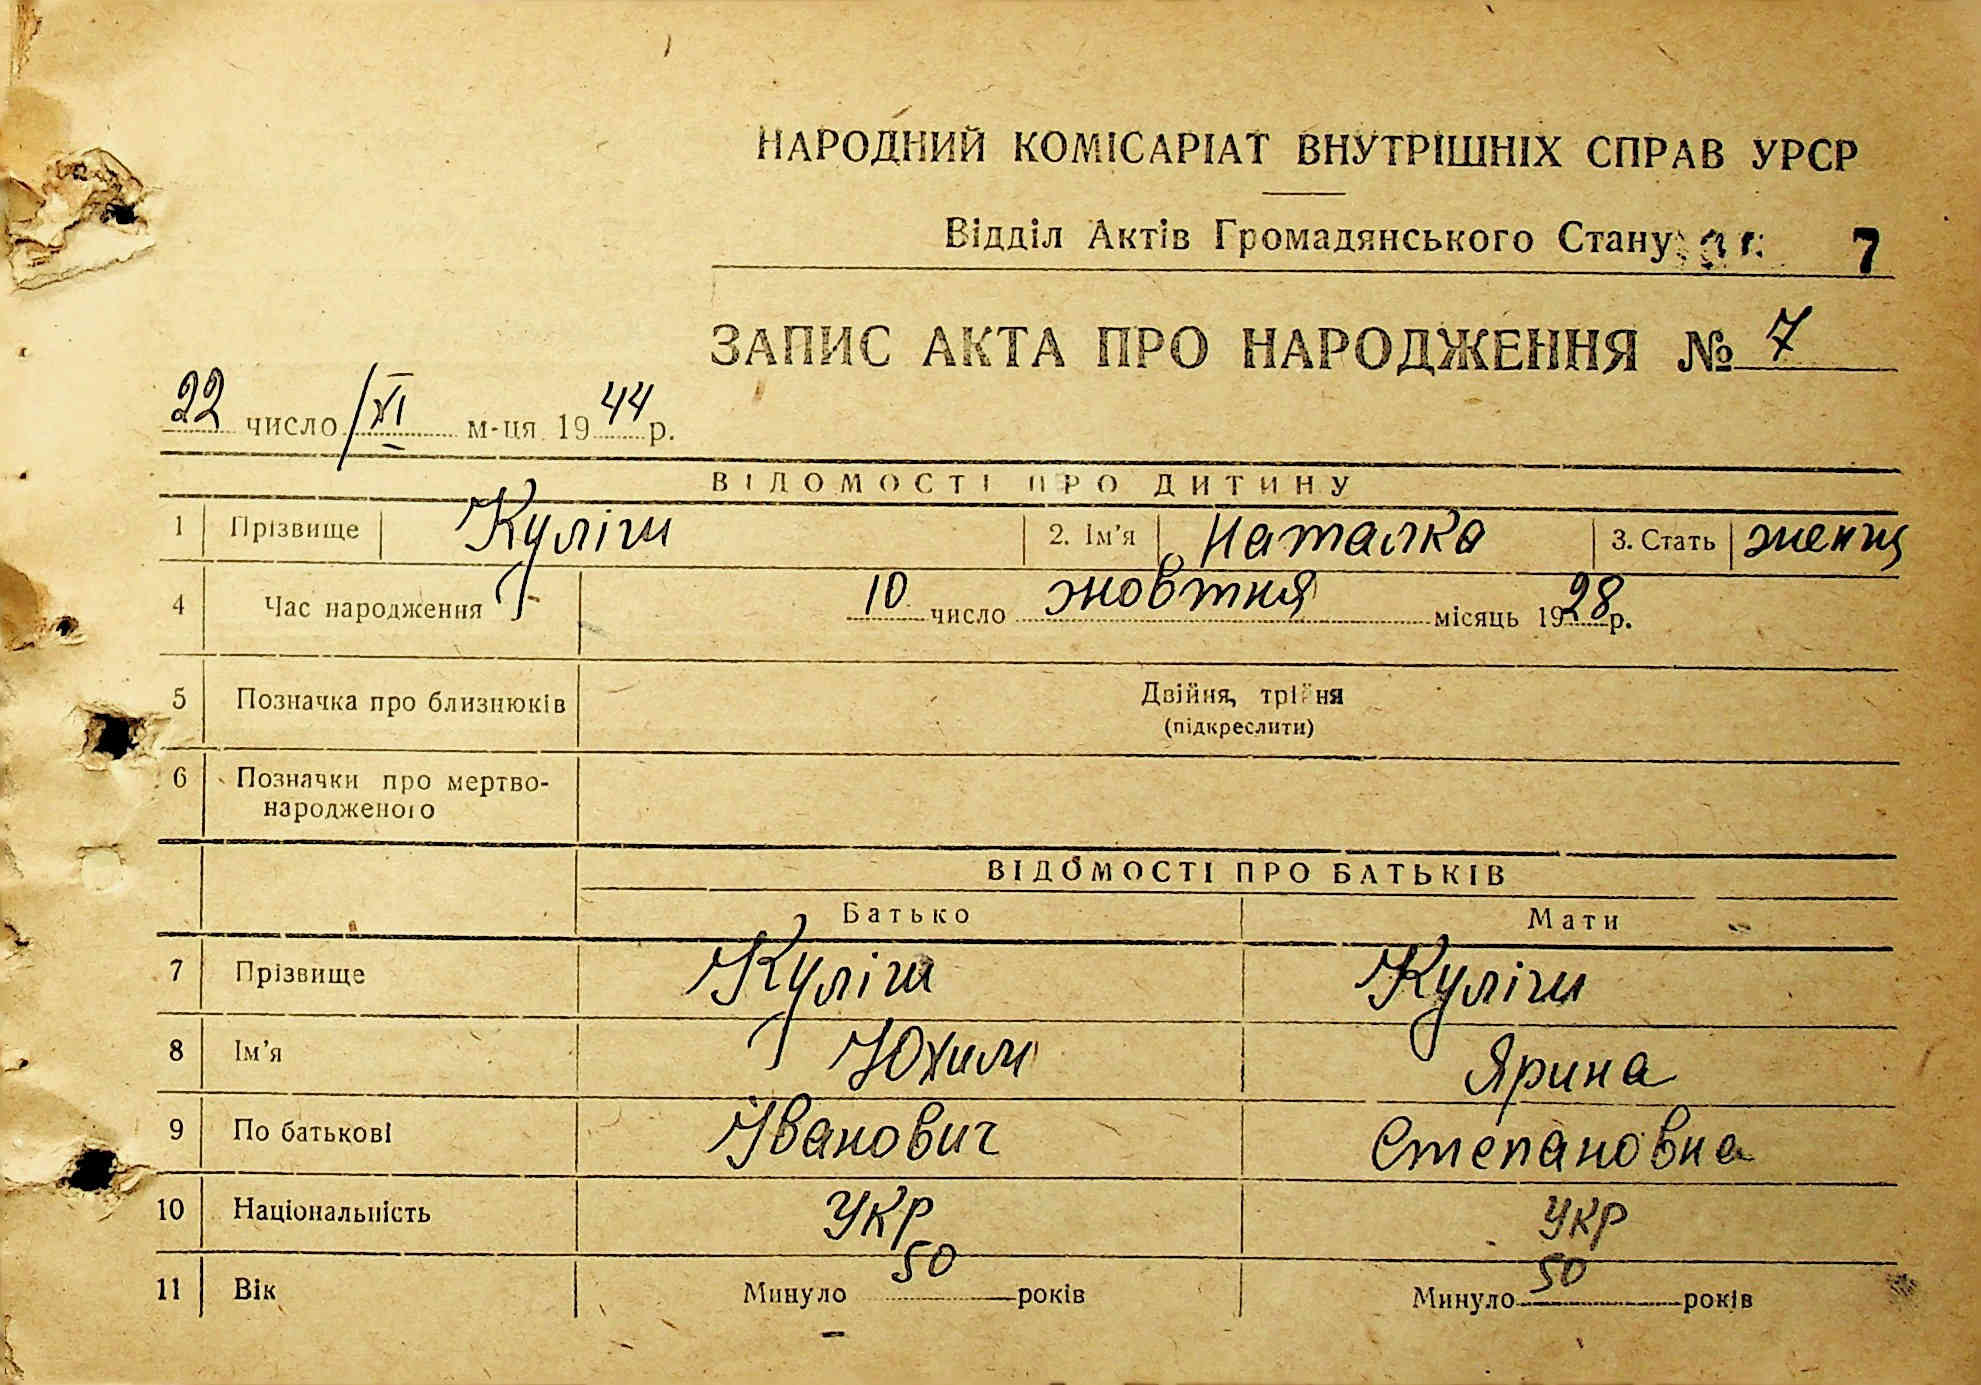 НАРОДНИЙ КОМІСАРІАТ ВНУТРІШНІХ СПРАВ УРСР
Відділ Актів Громадянського Стану 7
ЗАПИС АКТА ПРО НАРОДЖЕННЯ № 7
22 число XI м-ця 1944 р.
ВІДОМОСТІ ПРО ДИТИНУ
1 Прізвище Куліги 2. Ім'я Наталка 3. Стать
4 Час народження 10 число жовтня місяць 1928 р.
5 Позначка про близнюків Двійня, трійня
(підкреслити)
6 Позначки про мертво-
народженого
ВІДОМОСТІ ПРО БАТЬКІВ
Батько Мати
7 Прізвище Куліги Куліги
8 Ім'я Юхим Ярина
9 По батькові Іванович Степановна
10 Національність УКР УКР
11 Вік Минуло 50 років Минуло 50 років